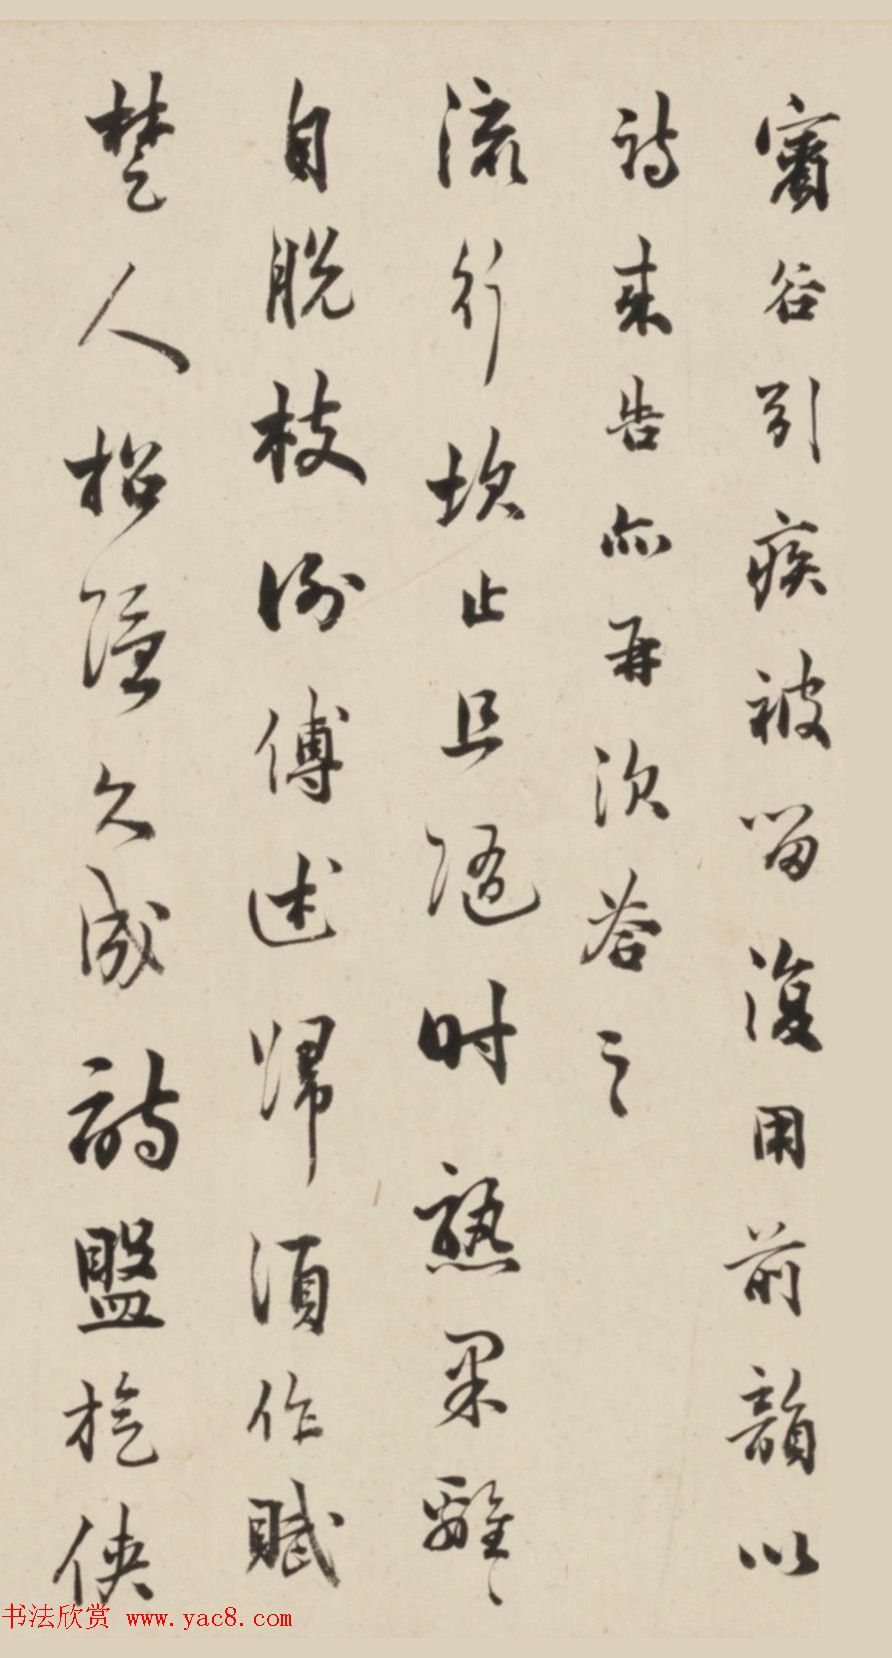 賓谷引疾被留復用前韻以
詩來告亦再次答之
流行坎止且隨時熟果離〻
自脫枝謝傅述歸須作賦
楚人招隱久成詩盤旋俠
书法欣赏 www.yac8.com